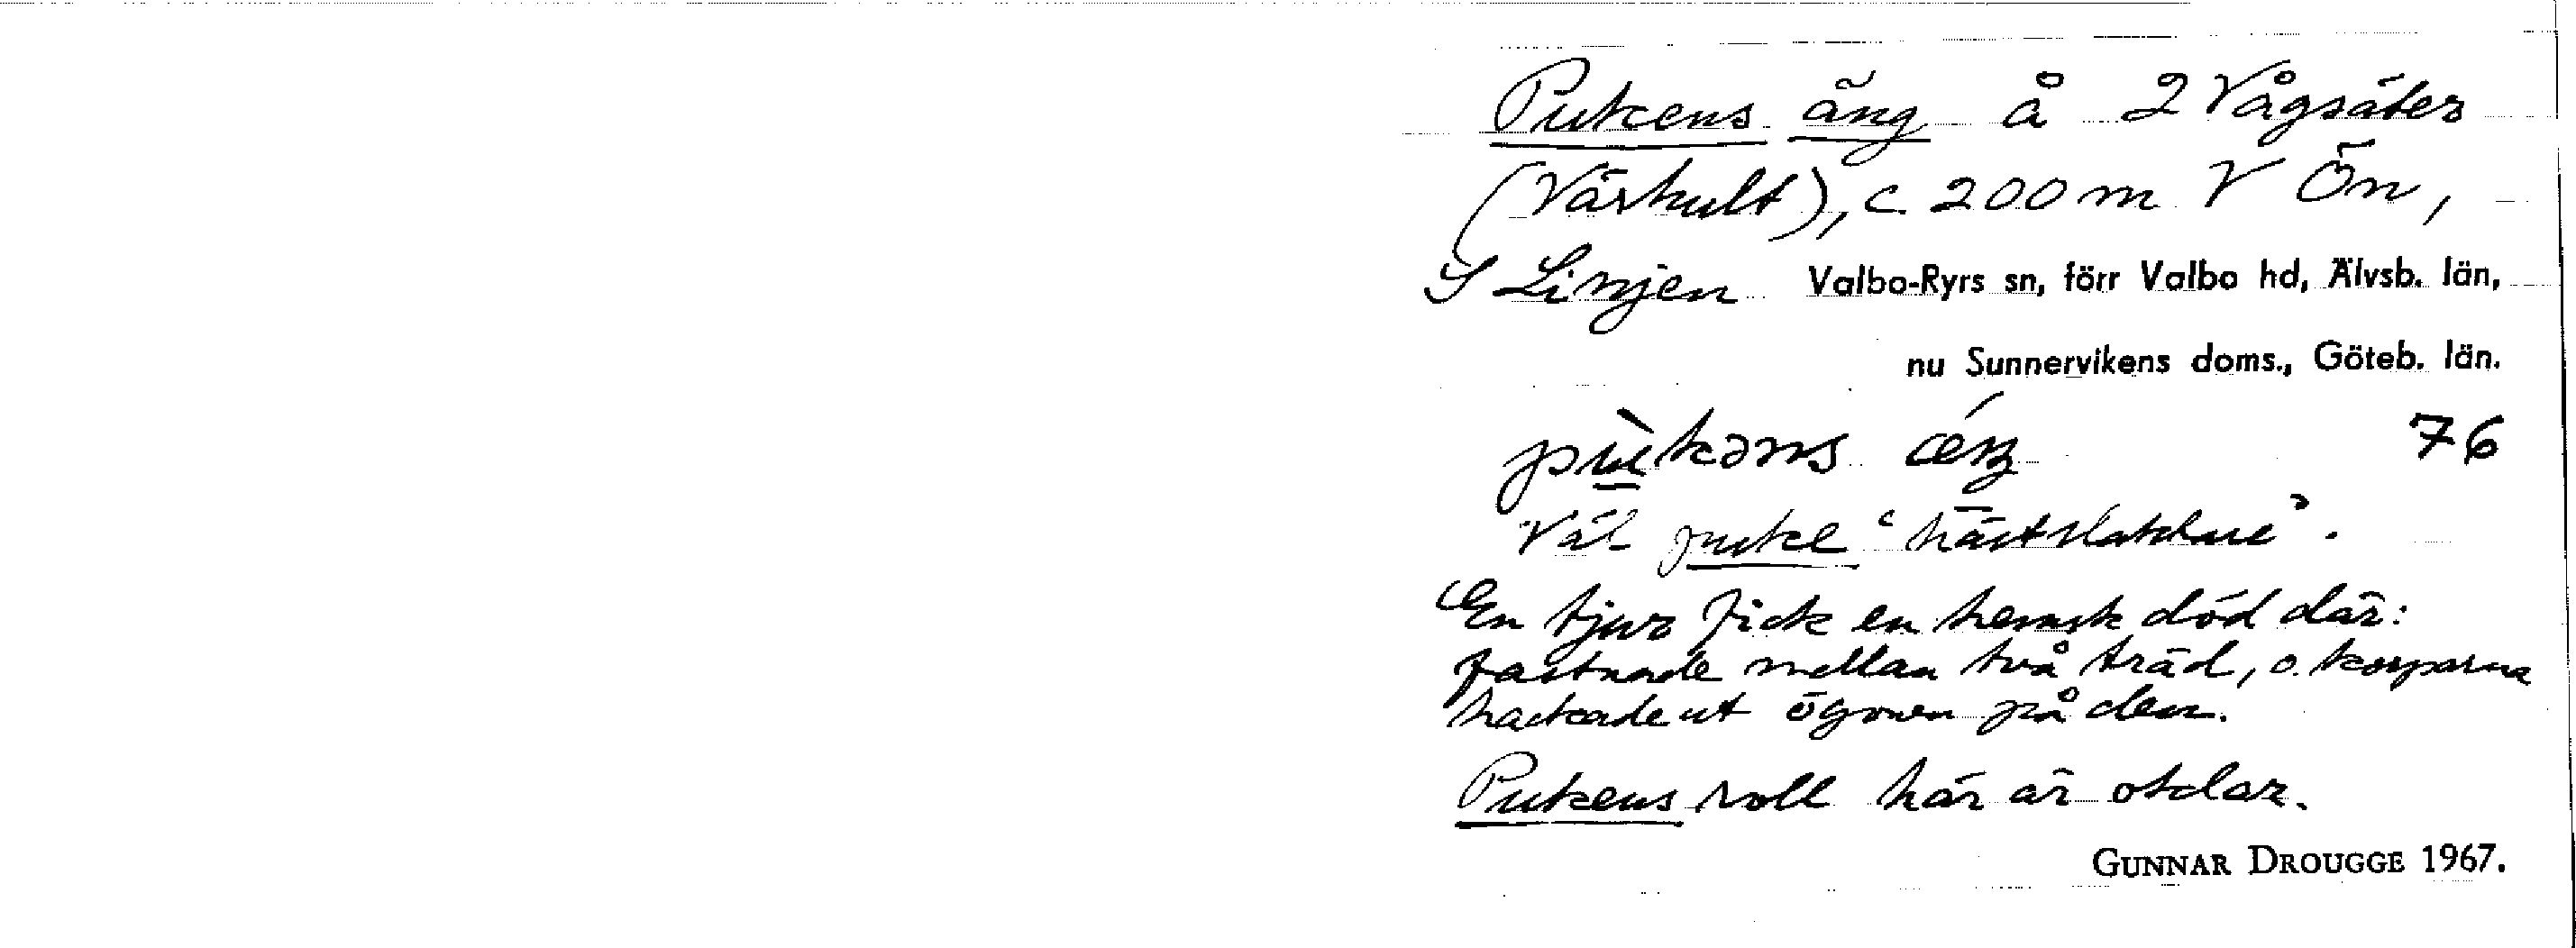 Pukens äng å 2 Vågsäter
(Värhult), c. 200 m V Ön,
S Linjen Valbo-Ryrs sn, förr Valbo hd, Älvsb. län,
nu Sunnervikens doms., Göteb. län.
pùkəns 76
Väl puke
En tjur fick en hemsk död där:
fastnade mellan två träd, o. korparna
hackade ut ögonen på den.
Pukens roll här är oklar.
GUNNAR DROUGGE 1967.